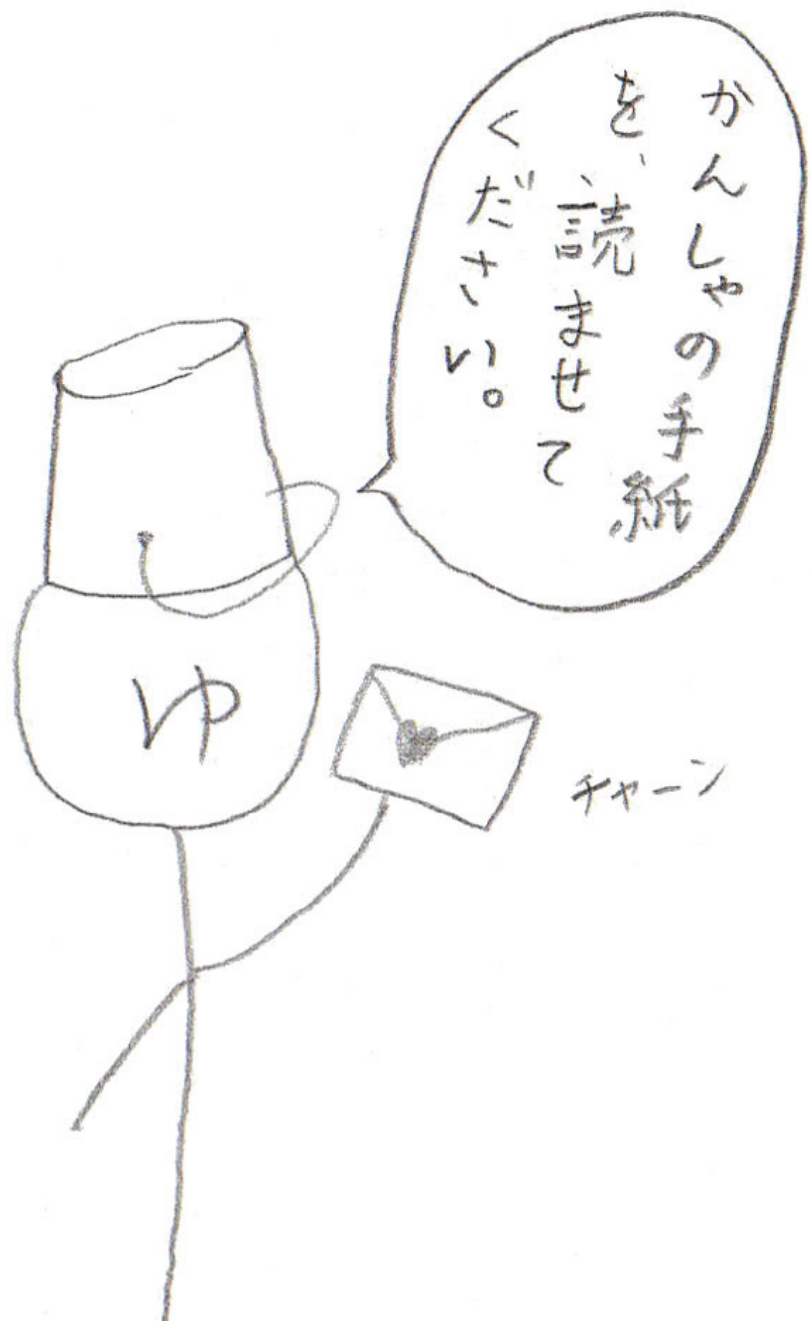 かんしゃの手紙
を、読ませて
ください。
ゆ
チャーン